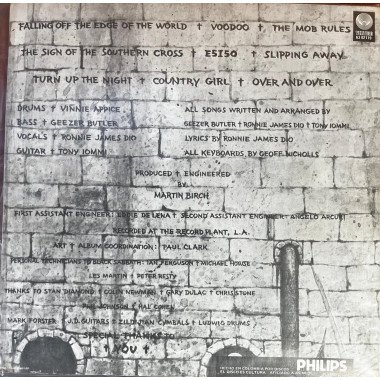 FALLING OFF THE EDGE OF THE WORLD † VOODOO † THE MOB RULES
THE SIGN OF THE SOUTHERN CROSS † E5150 † SLIPPING AWAY
TURN UP THE NIGHT † COUNTRY GIRL † OVER AND OVER
DRUMS † VINNIE APPICE
ALL SONGS WRITTEN AND ARRANGED BY
BASS † GEEZER BUTLER
GEEZER BUTLER † RONNIE JAMES DIO † TONY IOMMI
VOCALS † RONNIE JAMES DIO
LYRICS BY RONNIE JAMES DIO
GUITAR † TONY IOMMI
ALL KEYBOARDS BY GEOFF NICHOLLS
PRODUCED † ENGINEERED
BY
MARTIN BIRCH
FIRST ASSISTANT ENGINEER: EDDIE DELENA † SECOND ASSISTANT ENGINEER: ANGELO ARCURI
RECORDED AT THE RECORD PLANT, L.A.
ART † ALBUM COORDINATION: PAUL CLARK
PERSONAL TECHNICIANS TO BLACK SABBATH: IAN FERGUSON † MICHAEL HOWSE
LES MARTIN † PETER RESTY
THANKS TO STAN DIAMOND † COLIN NEWMAN † GARY DULAC † CHRIS STONE
PHIL JOHNSON †
MARK FORSTER † J.D. GUITARS † ZILDJIAN CYMBALS † LUDWIG DRUMS
SPECIAL THANKS TO
† YOU †
HECHO EN COLOMBIA POR DISCOS
PHILIPS